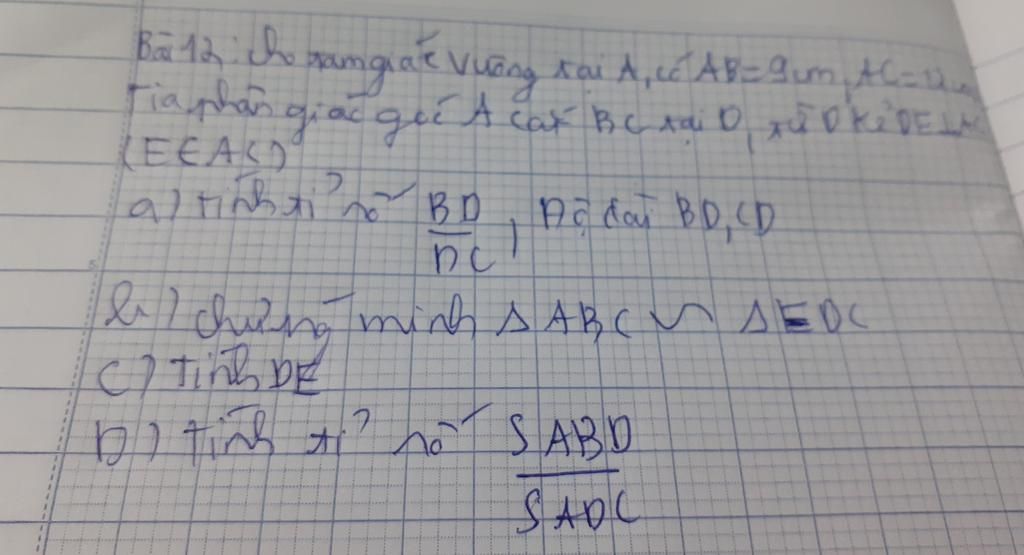 Bài 12: Cho tam giác vuông tại A, có AB=9cm, AC=12cm
Tia phân giác góc A cắt BC tại D, từ D kẻ DE⊥AC
(E∈AC)
a) tính tỉ số BD/DC, Độ dài BD, CD
b) chứng minh Δ ABC ∽ Δ EDC
c) tính DE
D) tính tỉ số SABD/SADC